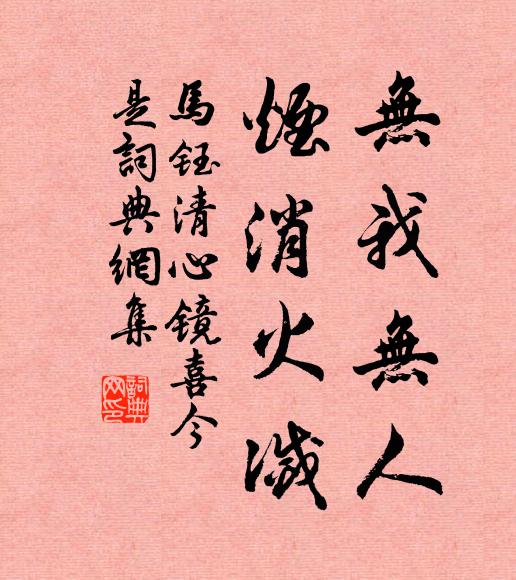 無我無人
煙消火滅
馬鈺清心鏡喜今
是詞典網集
詞典網印